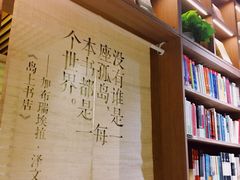 没有谁是一
座孤岛，每
本书都是一
个世界。
——加布瑞埃拉·泽文
《岛上书店》